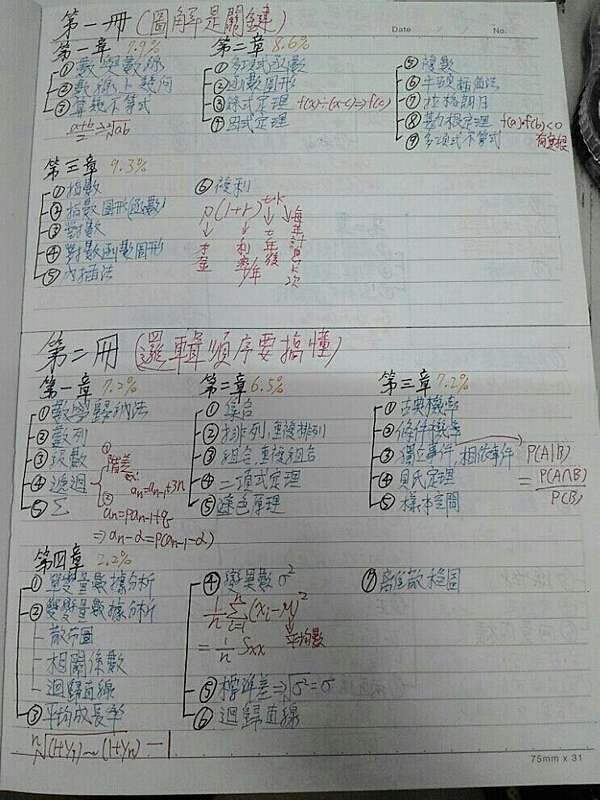 Date No.
第一冊(圖解是關鍵)
第一章 7.9%
①數與數線
②數線上幾何
③算幾不等式
a+b/2 ≥ √ab
第二章 8.6%
①多項式函數
②函數圖形
③餘式定理 f(x)÷(x-c)⇒f(c)
④因式定理
⑤複數
⑥牛頓插值法
⑦拉格朗日
⑧勘根定理 f(a)·f(b)<0
有實根
⑨多項式不等式
第三章 9.3%
①指數
②指數圖形(函數)
③對數
④對數函數圖形
⑤內插法
⑥複利
P(1+r)
本金
利率/年
t年後
每年計息k次
第二冊(邏輯順序要搞懂)
第一章 7.2%
①數學歸納法
②數列
③級數
④遞迴
⑤Σ
①階差
an=an-1+3n
②
an=Pan-1+q
⇒an-α=P(an-1-α)
第二章 6.5%
①集合
②排列,重複排列
③組合,重複組合
④二項式定理
⑤塗色原理
第三章 7.2%
①古典機率
②條件機率
③獨立事件,相依事件
④貝氏定理
⑤樣本空間
P(A|B)
= P(A∩B)/P(B)
第四章 2.2%
①單變量數據分析
②雙變量數據分析
散布圖
相關係數
迴歸直線
③平均成長率
ⁿ√(1+r1)~(1+rn) -1
④變異數σ²
1/n Σ(xi-μ)²
平均數
= 1/n Sxx
⑤標準差⇒√σ²=σ
⑥迴歸直線
⑦離散程圖
75mm x 31